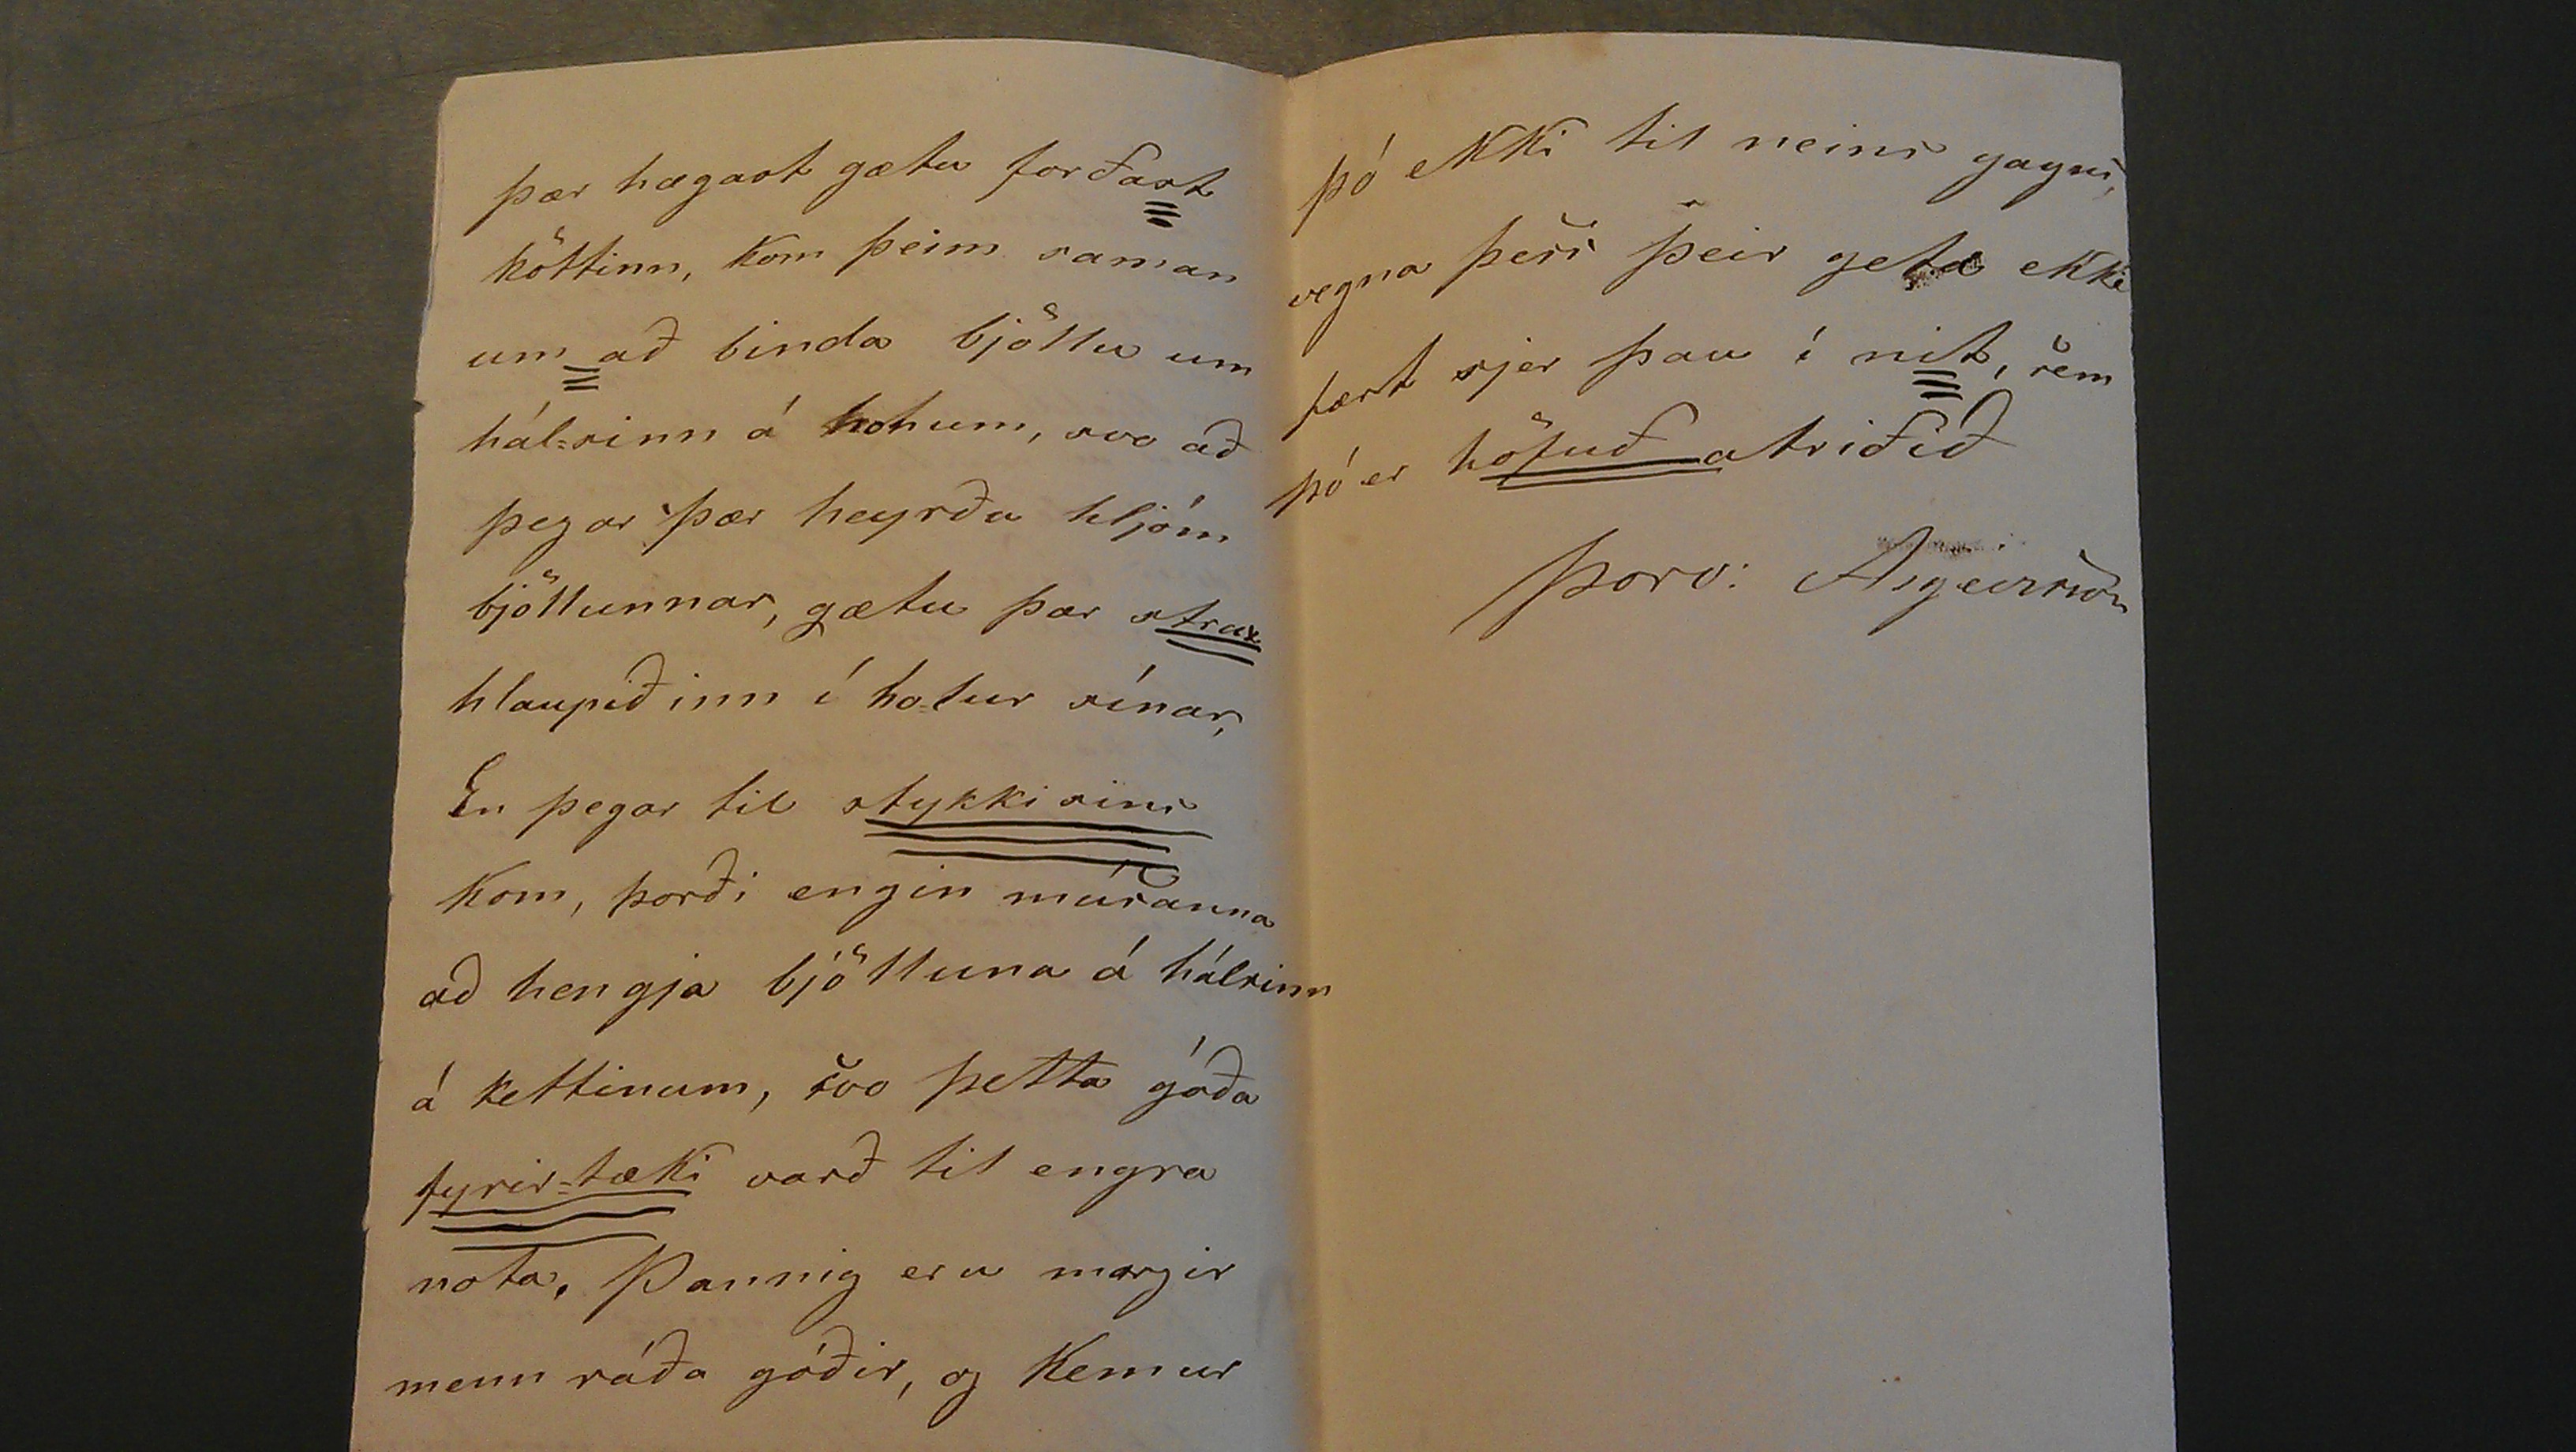 þær hægast gætu forðast
köttinn, kom þeim saman
um að binda bjöllu um
hál-sinn á honum, svo að
þegar þær heyrðu hljóm
bjöllunnar, gætu þær strax
hlaupið inn í holur sínar,
En þegar til stykkisins
kom, þorði engin músanna
að hengja bjölluna á hálsinn
á kettinum, svo þetta góða
fyrir-tæki varð til engra
nota. Þannig eru margir
menn ráða góðir, og kemur
þó ekki til neins gagns,
vegna þess þeir geta ekki
fært sjer þau í nit, sem
þó er höfuð atriðið
Þorv: Asgeirsson